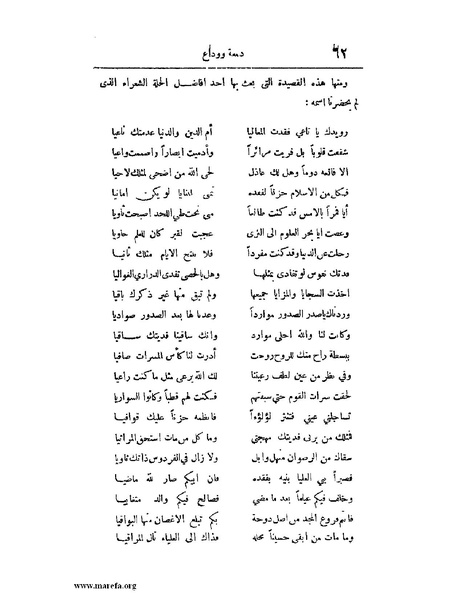 ٦٢ دمعة ووداع
ومنها هذه القصيدة التى بعث بها احد افاضل الحلة الشعراء الذى
لم يحضرنا اسمه :
رويدك يا ناعي فقدت المعاليا أم الدين والدنيا عدمتك ناعيا
شققت قلوباً بل فريت مرائراً وأدميت ابصاراً واصممت واعيا
الا فانعه دوماً وهل بك عاذل لحى الله من اضحى لمثلك لاحيا
فكل من الاسلام حزناً لفقده تمنى المنايا لو يكن امانيا
أيا قمراً بالامس قد كنت طالعاً متى تحت طي اللحد اصبحت ثاويا
وغصت ايا بحر العلوم الى الثرى عجبت لقبر كان للعلم حاويا
رحلت عن الدنيا وقد كنت مفرداً فلا منح الايام مثلك ثانيا
فدتك نفوس لو تفادى بمثلها وهل بالحصى تفدى الدراري الغواليا
اخذت السجايا والمزايا جميعها ولم تبق منها غير ذكرك باقيا
وردناك ياصدر الصدور موارداً وعدنا لها بعد الصدور صواديا
وكانت لنا والله احلى موارد وانك ساقينا فديتك ساقيا
ببسطة راح منك للروح روحت أدرت لنا كأس المسرات صافيا
وفي نظر من عين لطف رعيتنا لك الله يرعى مثل ما كنت راعيا
لحقت سراة القوم حتى سبقتهم فكنت لهم قطباً وكانوا السواريا
تساجلني عيني فتنثر لؤلؤاً فانظمه حزناً عليك قوافيا
فمثلك من يرثى فديتك مهجتي وما كل من مات استحق المراثيا
سقاك من الرضوان منهل وابل ولا زال في الفردوس ذاتك ثاويا
فصبراً بني العليا بنيه بفقده فان ابيكم صار لله ماضيا
وخلف فيكم عيلماً بعد ما مضى فصالح فيكم والد
فاتم فروع المجد من اصل دوحة بكم تبلغ الاغصان منها البواقيا
وما مات من ابقى حسيناً محله فذاك الى العلياء نال المراقيا
www.marefa.org